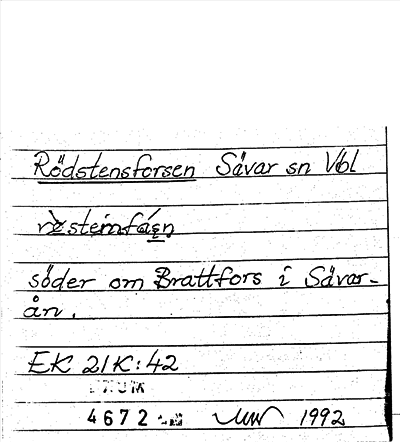 Rödstensforsen Sävar sn Vbl
söder om Brattfors i Sävar-
ån.
EK 21K:42
4672
1992